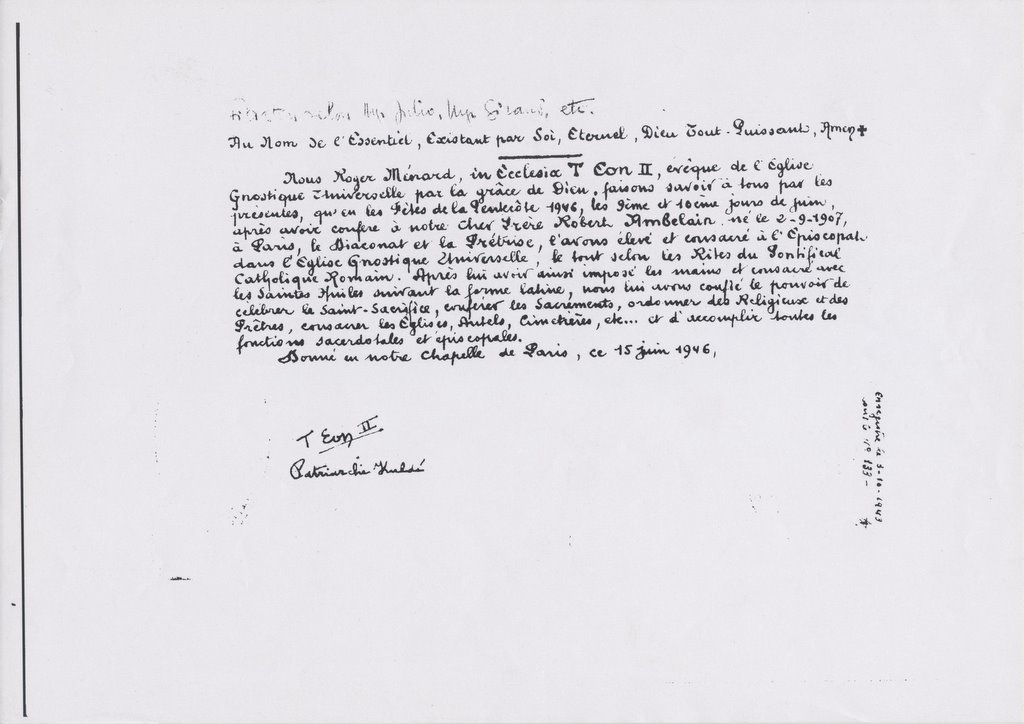 selon Mgr Julio, Mgr Giraud, etc.
Au Nom de l'Essentiel, Existant par Soi, Eternel, Dieu Tout-Puissant, Amen ✝
Nous Roger Ménard, in Ecclesia T Eon II, évêque de l'Eglise
Gnostique Universelle par la grâce de Dieu, faisons savoir à tous par les
présentes, qu'en les Fêtes de la Pentecôte 1946, les 9ème et 10ème jours de juin,
après avoir conféré à notre cher Frère Robert Ambelain né le 2-9-1907,
à Paris, le Diaconat et la Prêtrise, l'avons élevé et consacré à l'Episcopat
dans l'Eglise Gnostique Universelle, le tout selon les Rites du Pontifical
Catholique Romain. Après lui avoir ainsi imposé les mains et consacré avec
les Saintes Huiles suivant la forme latine, nous lui avons confié le pouvoir de
célébrer le Saint-Sacrifice, conférer les Sacrements, ordonner des Religieux et des
Prêtres, consacrer les Eglises, Autels, Cimetières, etc... et d'accomplir toutes les
fonctions sacerdotales et épiscopales.
Donné en notre Chapelle de Paris, ce 15 juin 1946,
T Eon II
Enregistré le 3-10-1943
sous le N° 133 -